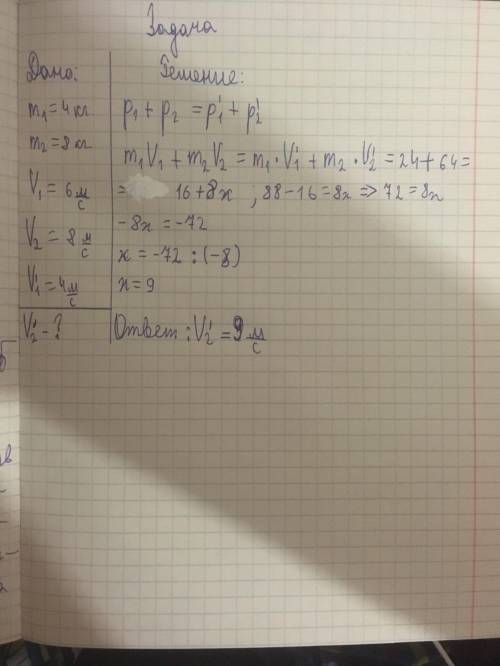 Задача
Дано:
m₁ = 4 кг.
m₂ = 8 кг
V₁ = 6 м/с
V₂ = 8 м/с
V₁' = 4 м/с
V₂' - ?
Решение:
p₁ + p₂ = p₁' + p₂'
m₁V₁ + m₂V₂ = m₁·V₁' + m₂·V₂' = 24 + 64 =
= 16 + 8x , 88 - 16 = 8x => 72 = 8x
-8x = -72
x = -72 : (-8)
x = 9
Ответ: V₂' = 9 м/с